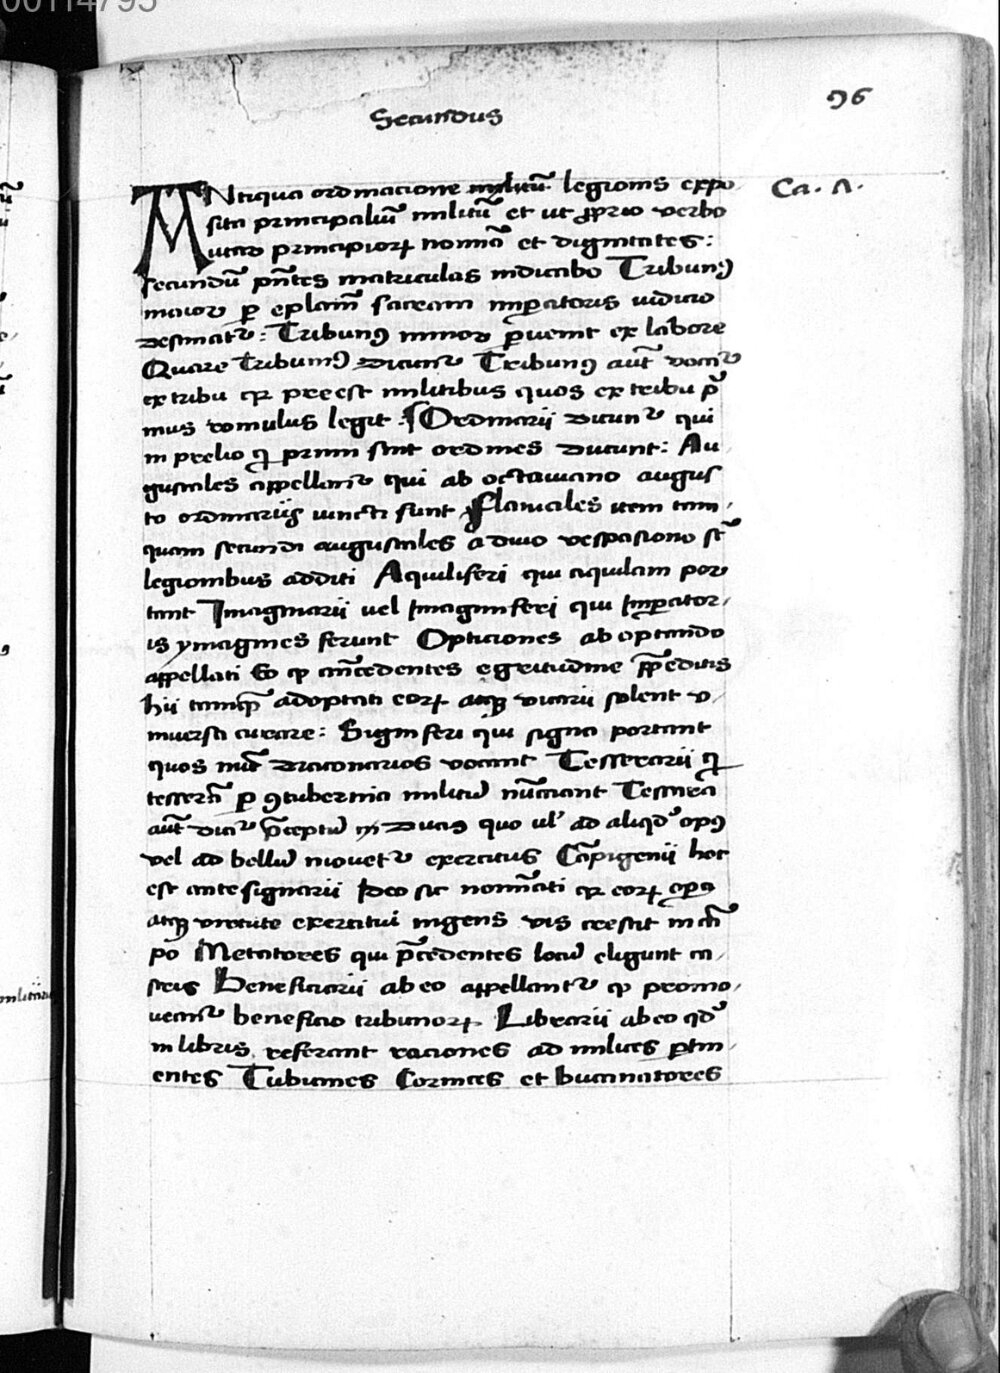 00114795
Secundus
96
ANtiqua ordinacione militũ legionis expo
Ca. Λ.
sita principaliũ militũ et ut ꝓprio verbo
utar principioꝝ nomĩa et dignitates:
secundũ p̃ntes matriculas indicabo Tribunꝰ
maior ꝑ eplam̃ sacram imꝑatoris iudicio
destinatᷣ: Tribunꝰ minor ꝓuenit ex labore
Quare Tribunꝰ dicunᷣ Tribunꝰ aut̃ vocaᷣ
ex tribu qꝛ preest militibus quos ex tribu p̃
mus romulus legit. Ordinarii dicunᷣ qui
in prelio qꝛ primi sint ordines ducunt: Au
gustales appellanᷣ qui ab octauiano augus
to ordinariis iuncti sunt flauiales item tam
quam secundi augustales a diuo vespasiono st̃
legionibus additi Aquiliferi qui aquilam por
tant Imaginarii uel Imaginiferi qui Imꝑator
is ymagines ferunt Opticiones ab optando
appellati Eo ꝙ an̄cedentes egritudine p̃peditis
hii tamq̃ adoptati eoꝝ atqꝫ vicarii solent v
niuersa curare: Signiferi qui signa portant
quos nũc draconarios vocant Tesserarii qͥ
tesserã ꝑ ꝯtubernia militũ nũciant Tessera
aut̃ diciᷣ p̃ceptũ ducis quo ul̃ ad aliqd̾ opꝰ
vel ad bellũ mouetᷣ exercitus Cãpigenii hoc
est antesignarii Ideo sic nomĩati qꝛ eoꝝ oꝑa
atqꝫ virtute exercitui ingens vis crescit in cã
po Metatores qui p̃cedentes locũ eligunt ca
stris Beneficiarii ab eo appellantᷣ ꝙ promo
ueanᷣ beneficio tribunoꝝ Librarii ab eo qd̾
in libris referant raciones ad milites ꝑtin
entes Tubicines Cornices et buccinatores